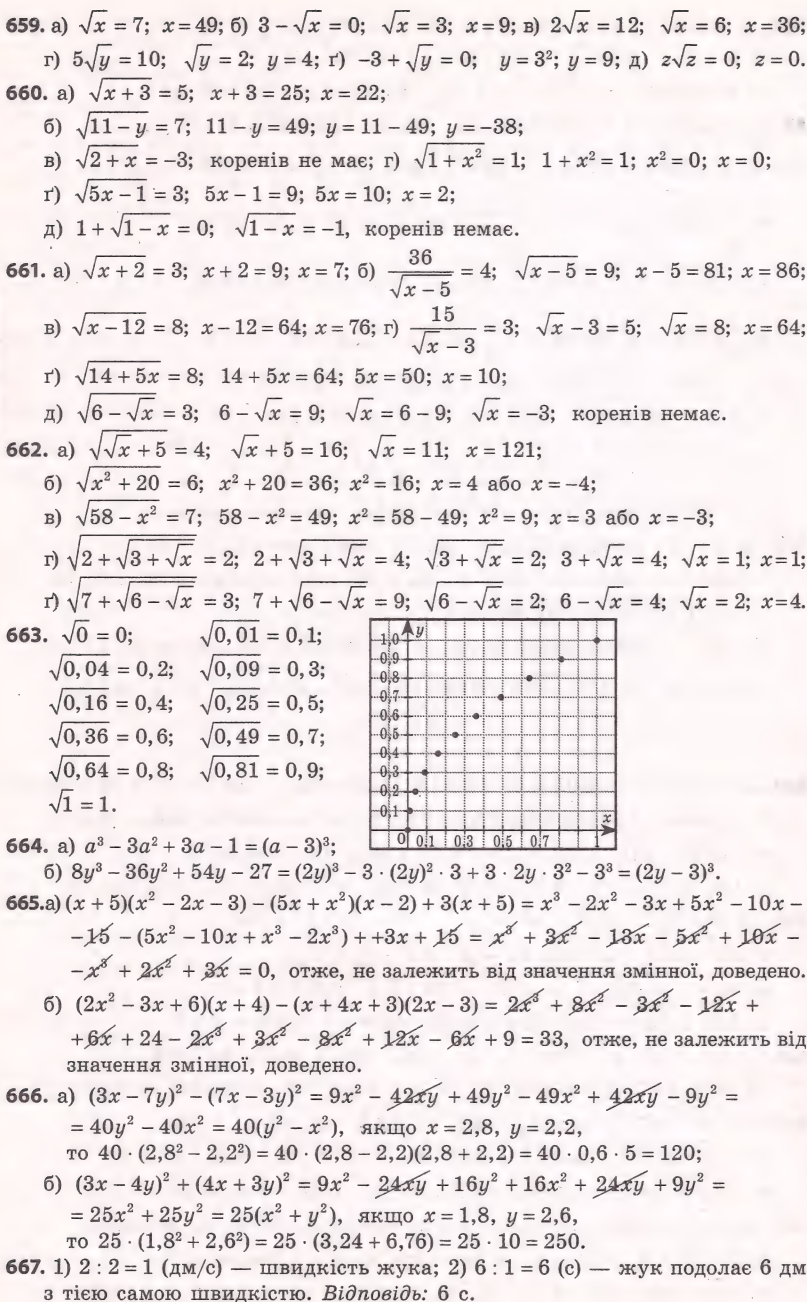 659. а) √x = 7; x = 49; б) 3 − √x = 0; √x = 3; x = 9; в) 2√x = 12; √x = 6; x = 36;
г) 5√y = 10; √y = 2; y = 4; ґ) −3 + √y = 0; y = 3²; y = 9; д) z√z = 0; z = 0.
660. а) √(x + 3) = 5; x + 3 = 25; x = 22;
б) √(11 − y) = 7; 11 − y = 49; y = 11 − 49; y = −38;
в) √(2 + x) = −3; коренів не має; г) √(1 + x²) = 1; 1 + x² = 1; x² = 0; x = 0;
ґ) √(5x − 1) = 3; 5x − 1 = 9; 5x = 10; x = 2;
д) 1 + √(1 − x) = 0; √(1 − x) = −1, коренів немає.
661. а) √(x + 2) = 3; x + 2 = 9; x = 7; б) 36/√(x − 5) = 4; √(x − 5) = 9; x − 5 = 81; x = 86;
в) √(x − 12) = 8; x − 12 = 64; x = 76; г) 15/(√x − 3) = 3; √x − 3 = 5; √x = 8; x = 64;
ґ) √(14 + 5x) = 8; 14 + 5x = 64; 5x = 50; x = 10;
д) √(6 − √x) = 3; 6 − √x = 9; √x = 6 − 9; √x = −3; коренів немає.
662. а) √(√x + 5) = 4; √x + 5 = 16; √x = 11; x = 121;
б) √(x² + 20) = 6; x² + 20 = 36; x² = 16; x = 4 або x = −4;
в) √(58 − x²) = 7; 58 − x² = 49; x² = 58 − 49; x² = 9; x = 3 або x = −3;
г) √(2 + √(3 + √x)) = 2; 2 + √(3 + √x) = 4; √(3 + √x) = 2; 3 + √x = 4; √x = 1; x=1;
ґ) √(7 + √(6 − √x)) = 3; 7 + √(6 − √x) = 9; √(6 − √x) = 2; 6 − √x = 4; √x = 2; x=4.
663. √0 = 0; √0,01 = 0,1;
√0,04 = 0,2; √0,09 = 0,3;
√0,16 = 0,4; √0,25 = 0,5;
√0,36 = 0,6; √0,49 = 0,7;
√0,64 = 0,8; √0,81 = 0,9;
√1 = 1.
y
1,0
0,9
0,8
0,7
0,6
0,5
0,4
0,3
0,2
0,1
x
0 0,1 0,3 0,5 0,7 1
664. а) a³ − 3a² + 3a − 1 = (a − 3)³;
б) 8y³ − 36y² + 54y − 27 = (2y)³ − 3 · (2y)² · 3 + 3 · 2y · 3² − 3³ = (2y − 3)³.
665. а) (x + 5)(x² − 2x − 3) − (5x + x²)(x − 2) + 3(x + 5) = x³ − 2x² − 3x + 5x² − 10x −
−15 − (5x² − 10x + x³ − 2x³) + +3x + 15 = x³ + 3x² − 13x − 5x² + 10x −
−x³ + 2x² + 3x = 0, отже, не залежить від значення змінної, доведено.
б) (2x² − 3x + 6)(x + 4) − (x + 4x + 3)(2x − 3) = 2x³ + 8x² − 3x² − 12x +
+6x + 24 − 2x³ + 3x² − 8x² + 12x − 6x + 9 = 33, отже, не залежить від
значення змінної, доведено.
666. а) (3x − 7y)² − (7x − 3y)² = 9x² − 42xy + 49y² − 49x² + 42xy − 9y² =
= 40y² − 40x² = 40(y² − x²), якщо x = 2,8, y = 2,2,
то 40 · (2,8² − 2,2²) = 40 · (2,8 − 2,2)(2,8 + 2,2) = 40 · 0,6 · 5 = 120;
б) (3x − 4y)² + (4x + 3y)² = 9x² − 24xy + 16y² + 16x² + 24xy + 9y² =
= 25x² + 25y² = 25(x² + y²), якщо x = 1,8, y = 2,6,
то 25 · (1,8² + 2,6²) = 25 · (3,24 + 6,76) = 25 · 10 = 250.
667. 1) 2 : 2 = 1 (дм/с) — швидкість жука; 2) 6 : 1 = 6 (с) — жук подолає 6 дм
з тією самою швидкістю. Відповідь: 6 с.